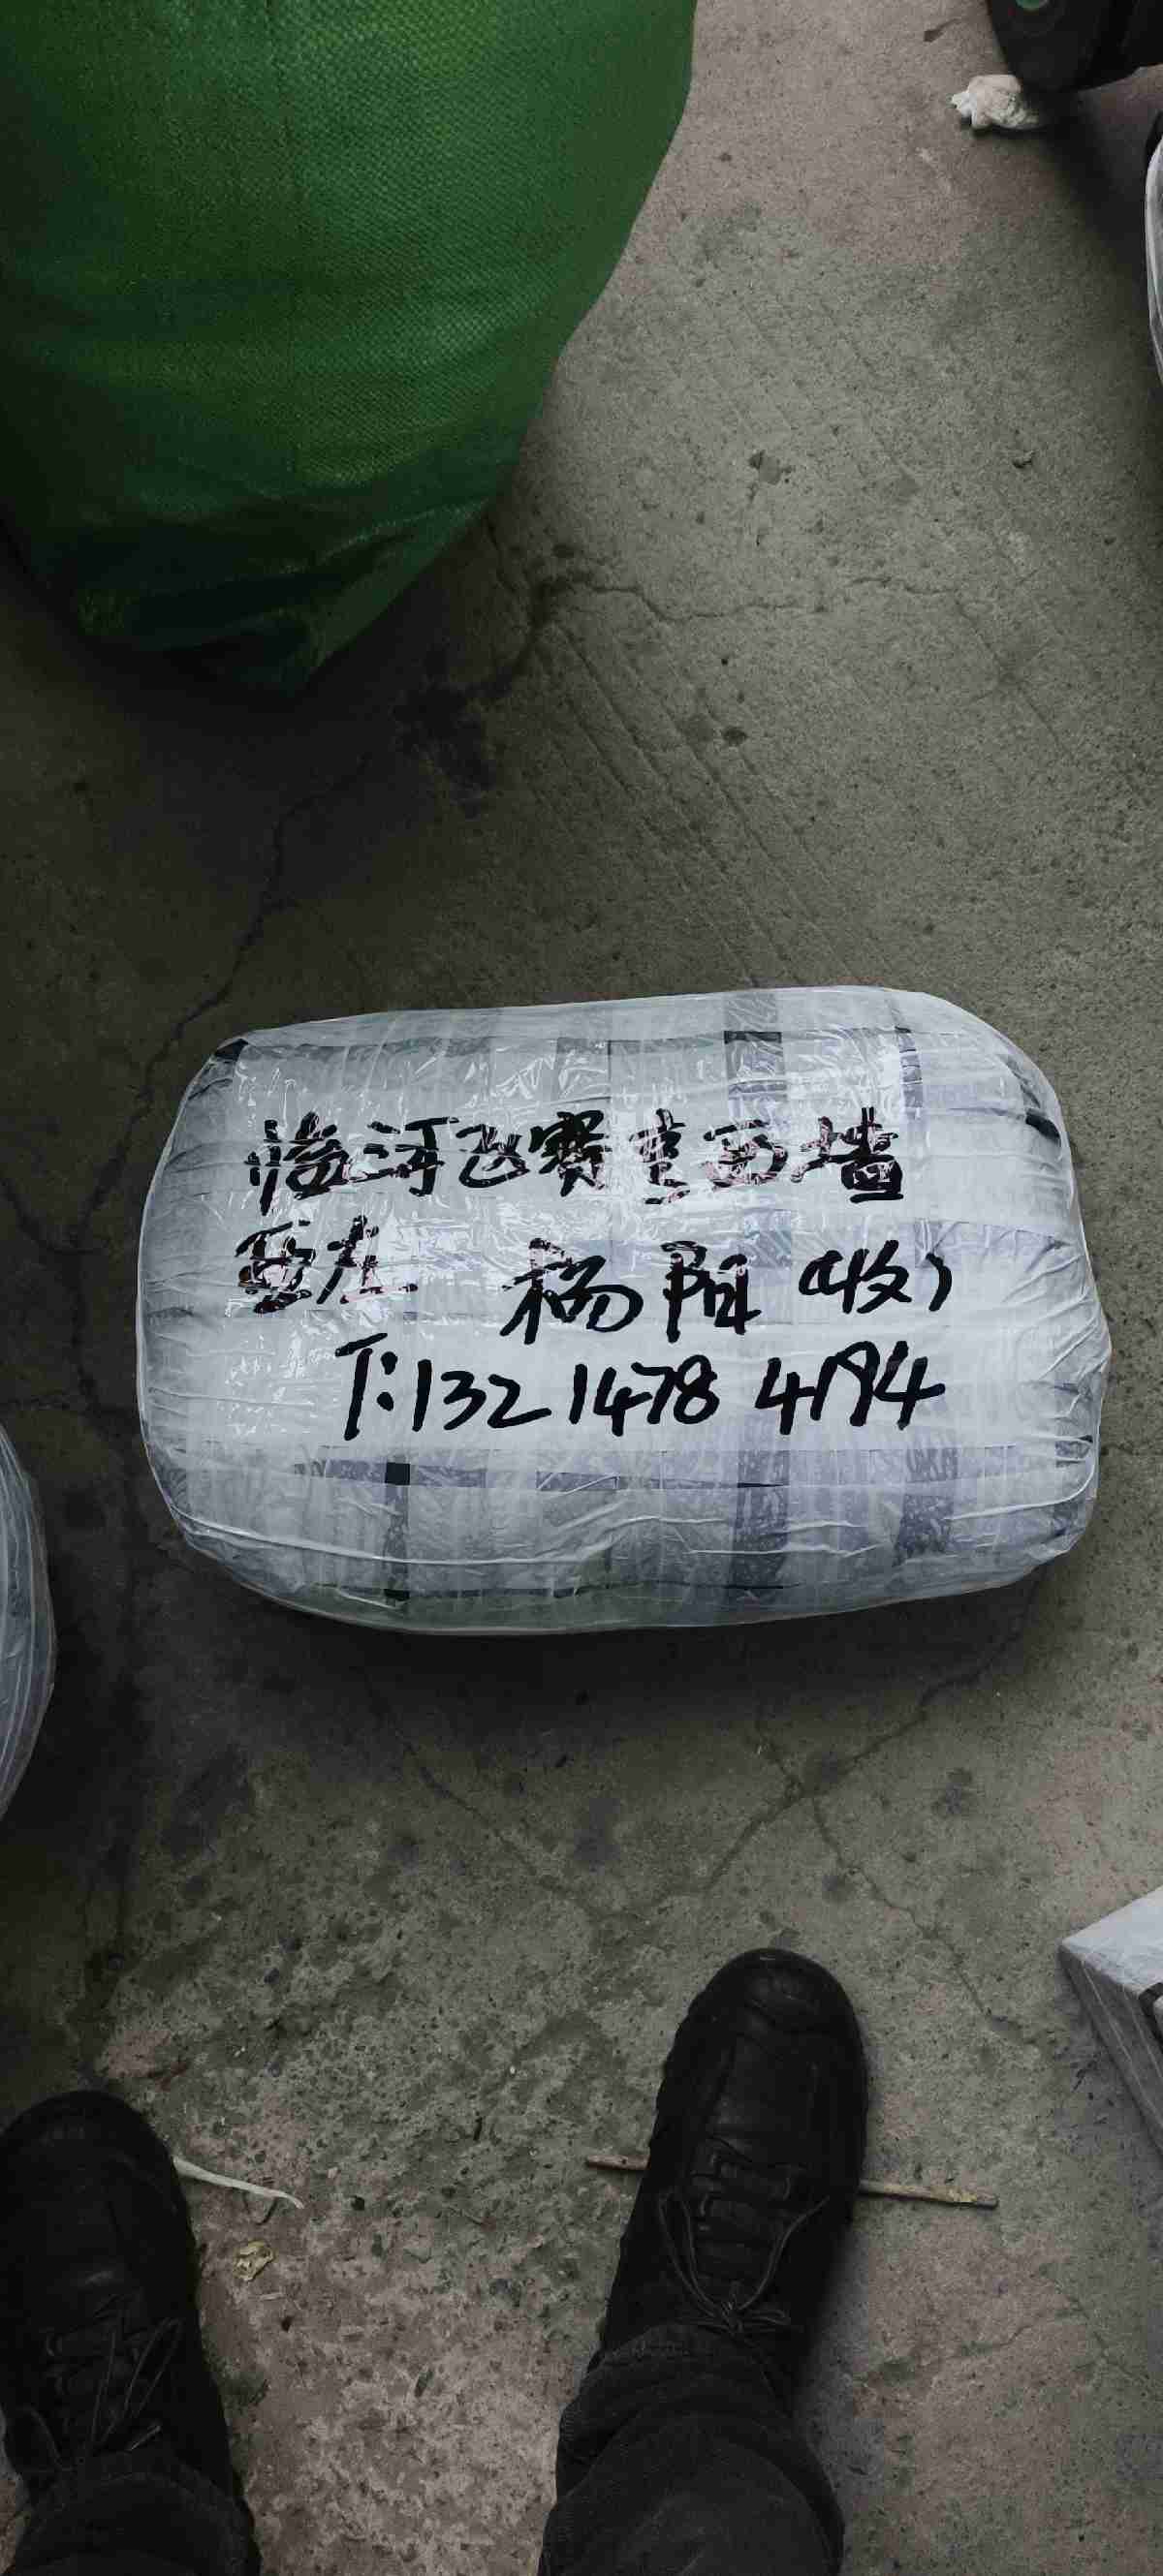 临河飞赛里西墙
西左 杨阳(收)
T:132 1478 4194